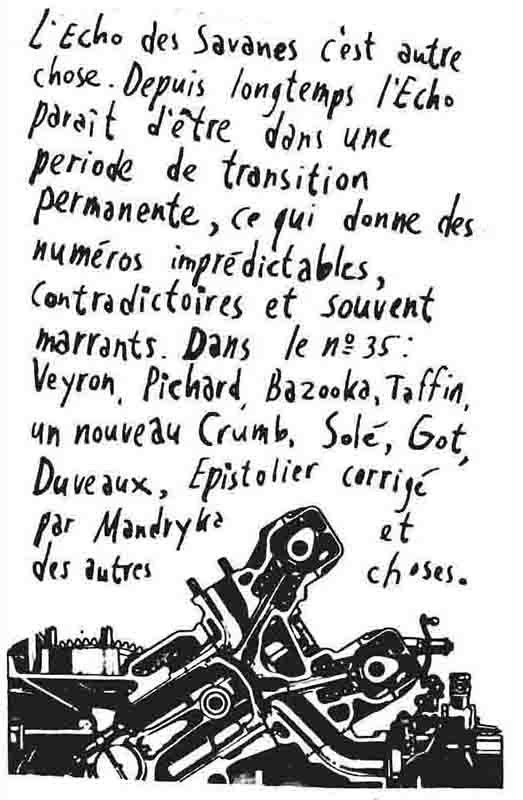 L'Echo des Savanes c'est autre
chose. Depuis longtemps l'Echo
paraît d'être dans une
periode de transition
permanente, ce qui donne des
numéros imprédictables,
contradictoires et souvent
marrants. Dans le nº 35:
Veyron, Pichard, Bazooka, Taffin,
un nouveau Crumb, Solé, Got,
Duveaux, Epistolier corrigé
par Mandryka et
des autres choses.